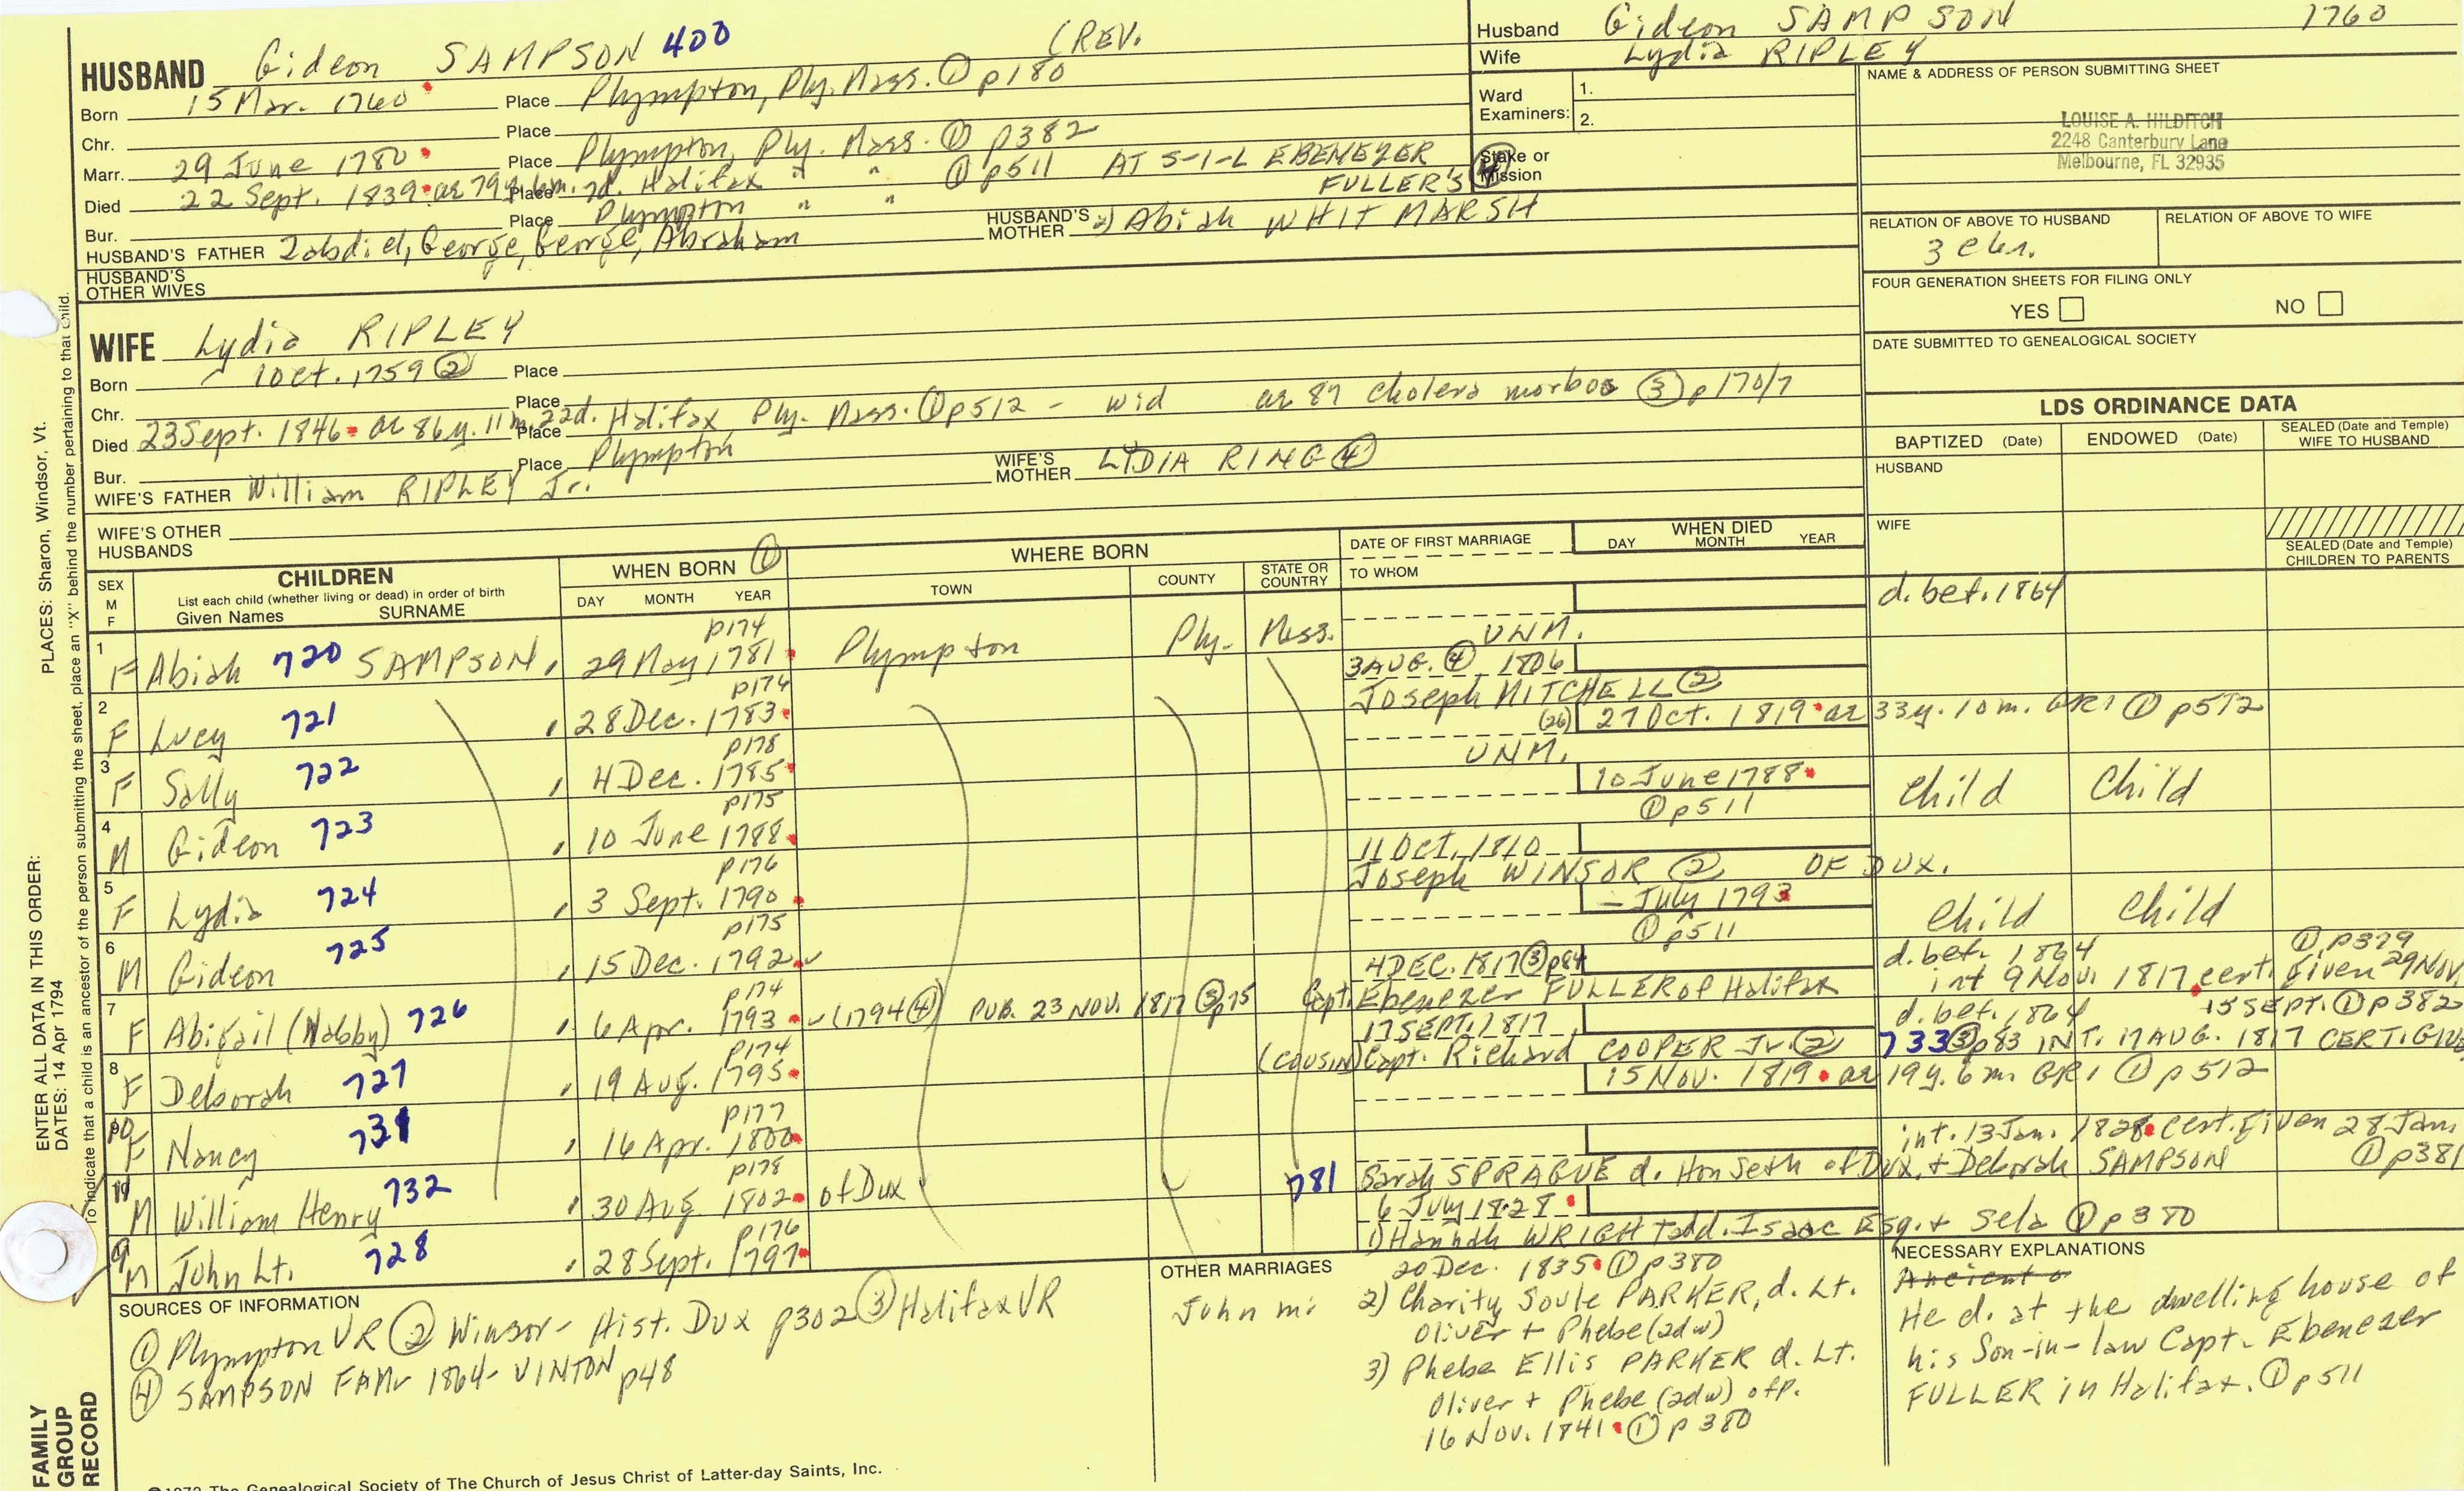 HUSBAND Gideon SAMPSON 400 (REV.
Born 15 Mar. 1760 Place Plympton, Ply. Mass. ① p180
Chr. Place
Marr. 29 June 1780 Place Plympton, Ply. Mass. ① p382
Died 22 Sept. 1839 ae 79y. 6m. 7d. Place Halifax " " ① p511 AT S-I-L EBENEZER FULLER'S ④
Bur. Place Plympton " "
HUSBAND'S FATHER Zabdiel, George, George, Abraham HUSBAND'S MOTHER 2) Abiah WHITMARSH
HUSBAND'S OTHER WIVES
Husband Gideon SAMPSON 1760
Wife Lydia RIPLEY
Ward Examiners: 1.
2.
Stake or Mission
NAME & ADDRESS OF PERSON SUBMITTING SHEET
LOUISE A. HILDITCH
2248 Canterbury Lane
Melbourne, FL 32935
RELATION OF ABOVE TO HUSBAND RELATION OF ABOVE TO WIFE
FOUR GENERATION SHEETS FOR FILING ONLY
YES NO
DATE SUBMITTED TO GENEALOGICAL SOCIETY
WIFE Lydia RIPLEY
Born 1 Oct. 1759 ② Place
Chr. Place
Died 23 Sept. 1846 ae 86y. 11m. 22d. Place Halifax, Ply. Mass. ① p512 - wid ae 87 cholera morbos ③ p170/7
Bur. Place Plympton
WIFE'S FATHER William RIPLEY Jr. WIFE'S MOTHER LYDIA RING ④
WIFE'S OTHER HUSBANDS
LDS ORDINANCE DATA
BAPTIZED (Date) ENDOWED (Date) SEALED (Date and Temple) WIFE TO HUSBAND
HUSBAND
WIFE
SEALED (Date and Temple) CHILDREN TO PARENTS
SEX M F
CHILDREN
List each child (whether living or dead) in order of birth
Given Names SURNAME
WHEN BORN ①
DAY MONTH YEAR
WHERE BORN
TOWN COUNTY STATE OR COUNTRY
DATE OF FIRST MARRIAGE
TO WHOM
WHEN DIED
DAY MONTH YEAR
1 F Abiah 720 SAMPSON, p174 29 May 1781 Plympton Ply. Mass. UNM. d. bef. 1864
2 F Lucy 721 p174 28 Dec. 1783 3 AUG. ④ 1806 Joseph MITCHELL ②
3 F Sally 722 p178 4 Dec. 1785 (26) 27 Oct. 1819 ae 33y. 10m. GR1 ① p512 UNM.
4 M Gideon 723 p175 10 June 1788 10 June 1788 ① p511 Child Child
5 F Lydia 724 p176 3 Sept. 1790 11 Oct. 1810 Joseph WINSOR ② OF DUX.
6 M Gideon 725 p175 15 Dec. 1792 – July 1793 ① p511 Child Child
7 F Abigail (Nabby) 726 p174 6 Apr. 1793 (1794 ④) PUB. 23 NOV. 1817 ③ p75 4 DEC. 1817 ③ p84 Capt. Ebenezer FULLER of Halifax d. bef. 1864 ① p379 int 9 Nov. 1817 cert. given 29 Nov.
8 F Deborah 727 p174 19 Aug. 1795 17 SEPT. 1817 (COUSIN) Capt. Richard COOPER Jr. ② d. bef. 1864 15 SEPT. ① p382 733 ③ p83 INT. 17 AUG. 1817 CERT. GIVE
10 F Nancy 731 p177 16 Apr. 1800 15 Nov. 1819 ae 19y. 6m. GR1 ① p512
M William Henry 732 p178 30 Aug. 1802 of Dux 781 Sarah SPRAGUE d. Hon Seth of Dux. + Deborah SAMPSON int. 13 Jan. 1828 cert. given 28 Jan ① p381
9 M John Lt. 728 p176 28 Sept. 1797 6 July 1828 1) Hannah WRIGHT dd. Isaac Esq. + Sela ① p380
OTHER MARRIAGES
John m:
20 Dec. 1835 ① p380
2) Charity Soule PARKER, d. Lt.
Oliver + Phebe (2dw)
3) Phebe Ellis PARKER d. Lt.
Oliver + Phebe (2dw) of P.
16 Nov. 1841 ① p380
NECESSARY EXPLANATIONS
He d. at the dwelling house of
his Son-in-law Capt. Ebenezer
FULLER in Halifax. ① p511
SOURCES OF INFORMATION
① Plympton VR ② Winsor - Hist. Dux p302 ③ Halifax VR
④ SAMPSON FAM. 1864 - VINTON p48
The Genealogical Society of The Church of Jesus Christ of Latter-day Saints, Inc.
ENTER ALL DATA IN THIS ORDER: PLACES: Sharon, Windsor, Vt.
DATES: 14 Apr 1794
To indicate that a child is an ancestor of the person submitting the sheet, place an "X" behind the number pertaining to that child.
FAMILY
GROUP
RECORD